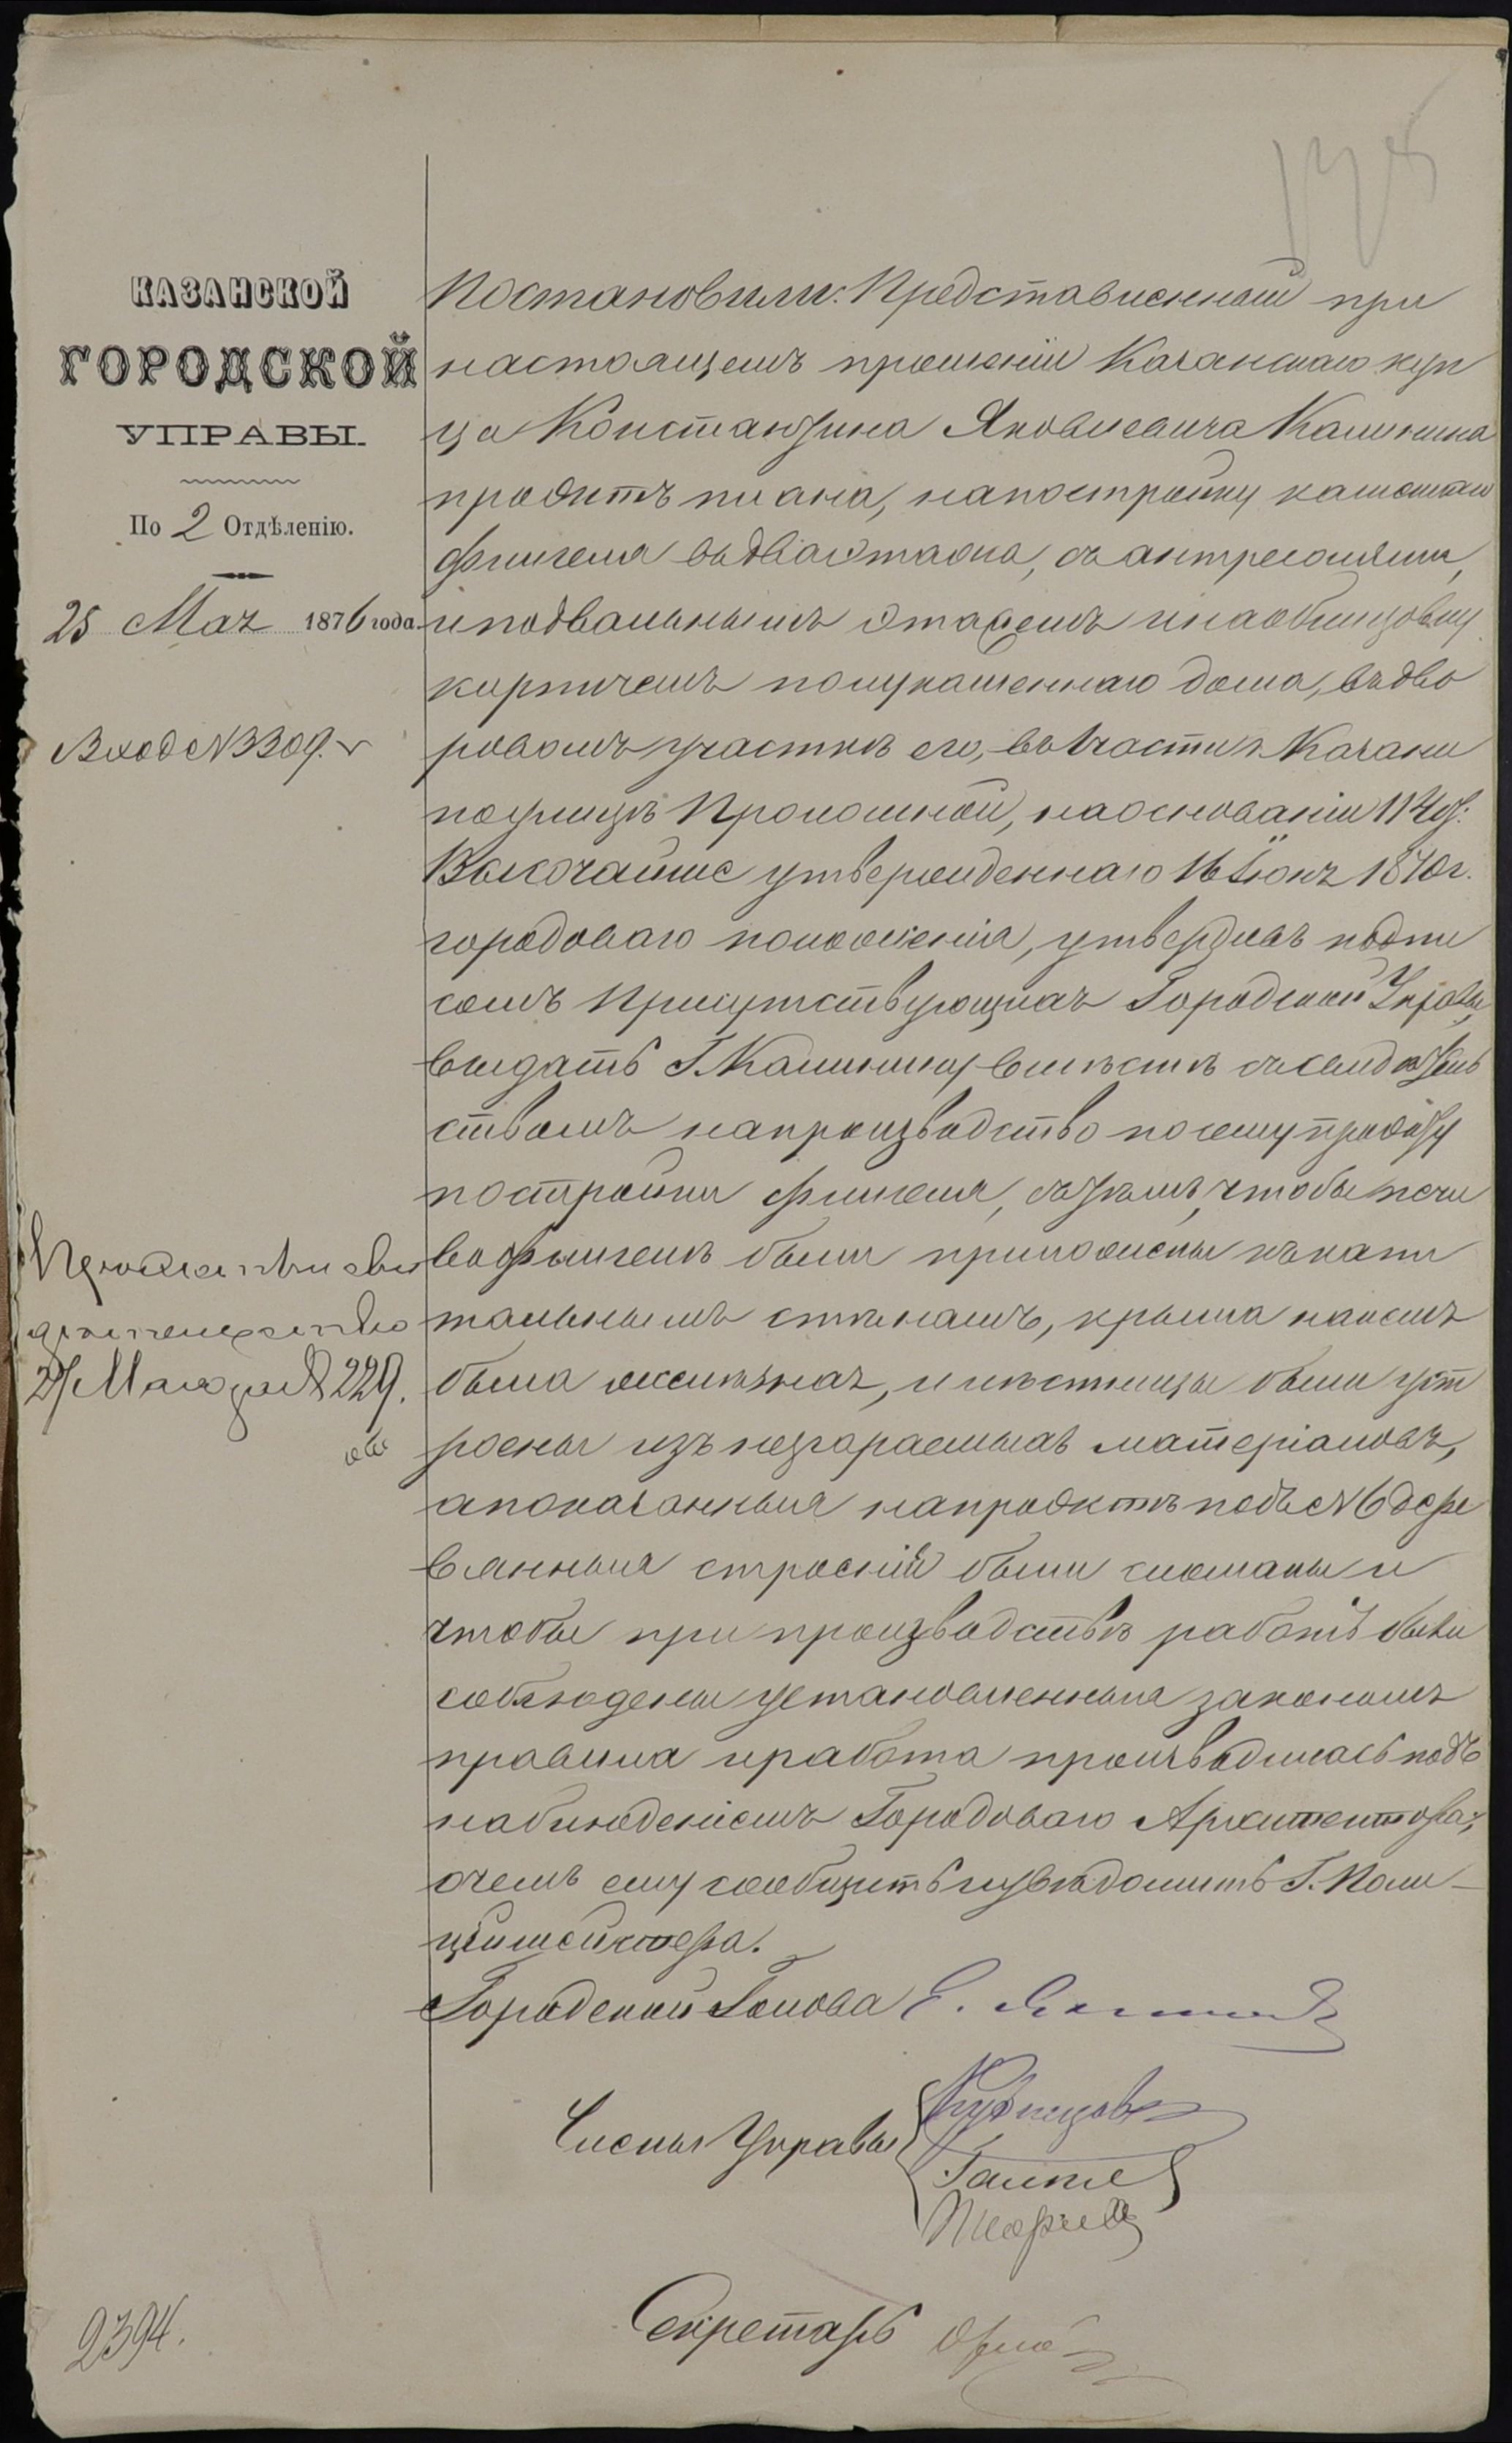 КАЗАНСКОЙ
ГОРОДСКОЙ
УПРАВЫ.
По 2 Отдѣленію.
25 Мая 1876 года.
Вход № 3309.
Постановили: Представленный при
настоящемъ прошеніи Казанскаго куп
ца Константина Яковлевича Калинина
проэктъ плана, на постройку каменнаго
флигеля въ два этажа, съ антресолями,
и подвальнымъ этажемъ и на облицовку
кирпичемъ полукаменнаго дома, въ дво
ровомъ участкѣ его, въ 1 части г. Казани
по улицѣ Проломной, на основаніи 114 ст.
Высочайше утвержденнаго 16 Іюня 1870 г.
городоваго положенія, утвердивъ подпи
сомъ Присутствующихъ Городской Управы,
выдать Г. Калинину вмѣстѣ съ свидѣтель
ствомъ на производство по сему проэкту
постройки флигеля, съ тѣмъ, чтобы печи
во флигелѣ были приложены къ капи
тальнымъ стѣнамъ, крыша на немъ
была желѣзная, и лѣстницы были уст
роены изъ несгораемыхъ матеріаловъ,
а показанныя на проэктѣ подъ № 6 дере
вянныя строенія были сломаны и
чтобы при производствѣ работъ были
соблюдены установленныя закономъ
правила и работа производилась подъ
наблюденіемъ Городоваго Архитектора,
о чемъ ему сообщить и увѣдомить Г. Поли-
цiймейстера.
27 Мая за № 229.
Городской Голова Е.
Члены Управы
Кузнецовъ
Секретарь
2394.